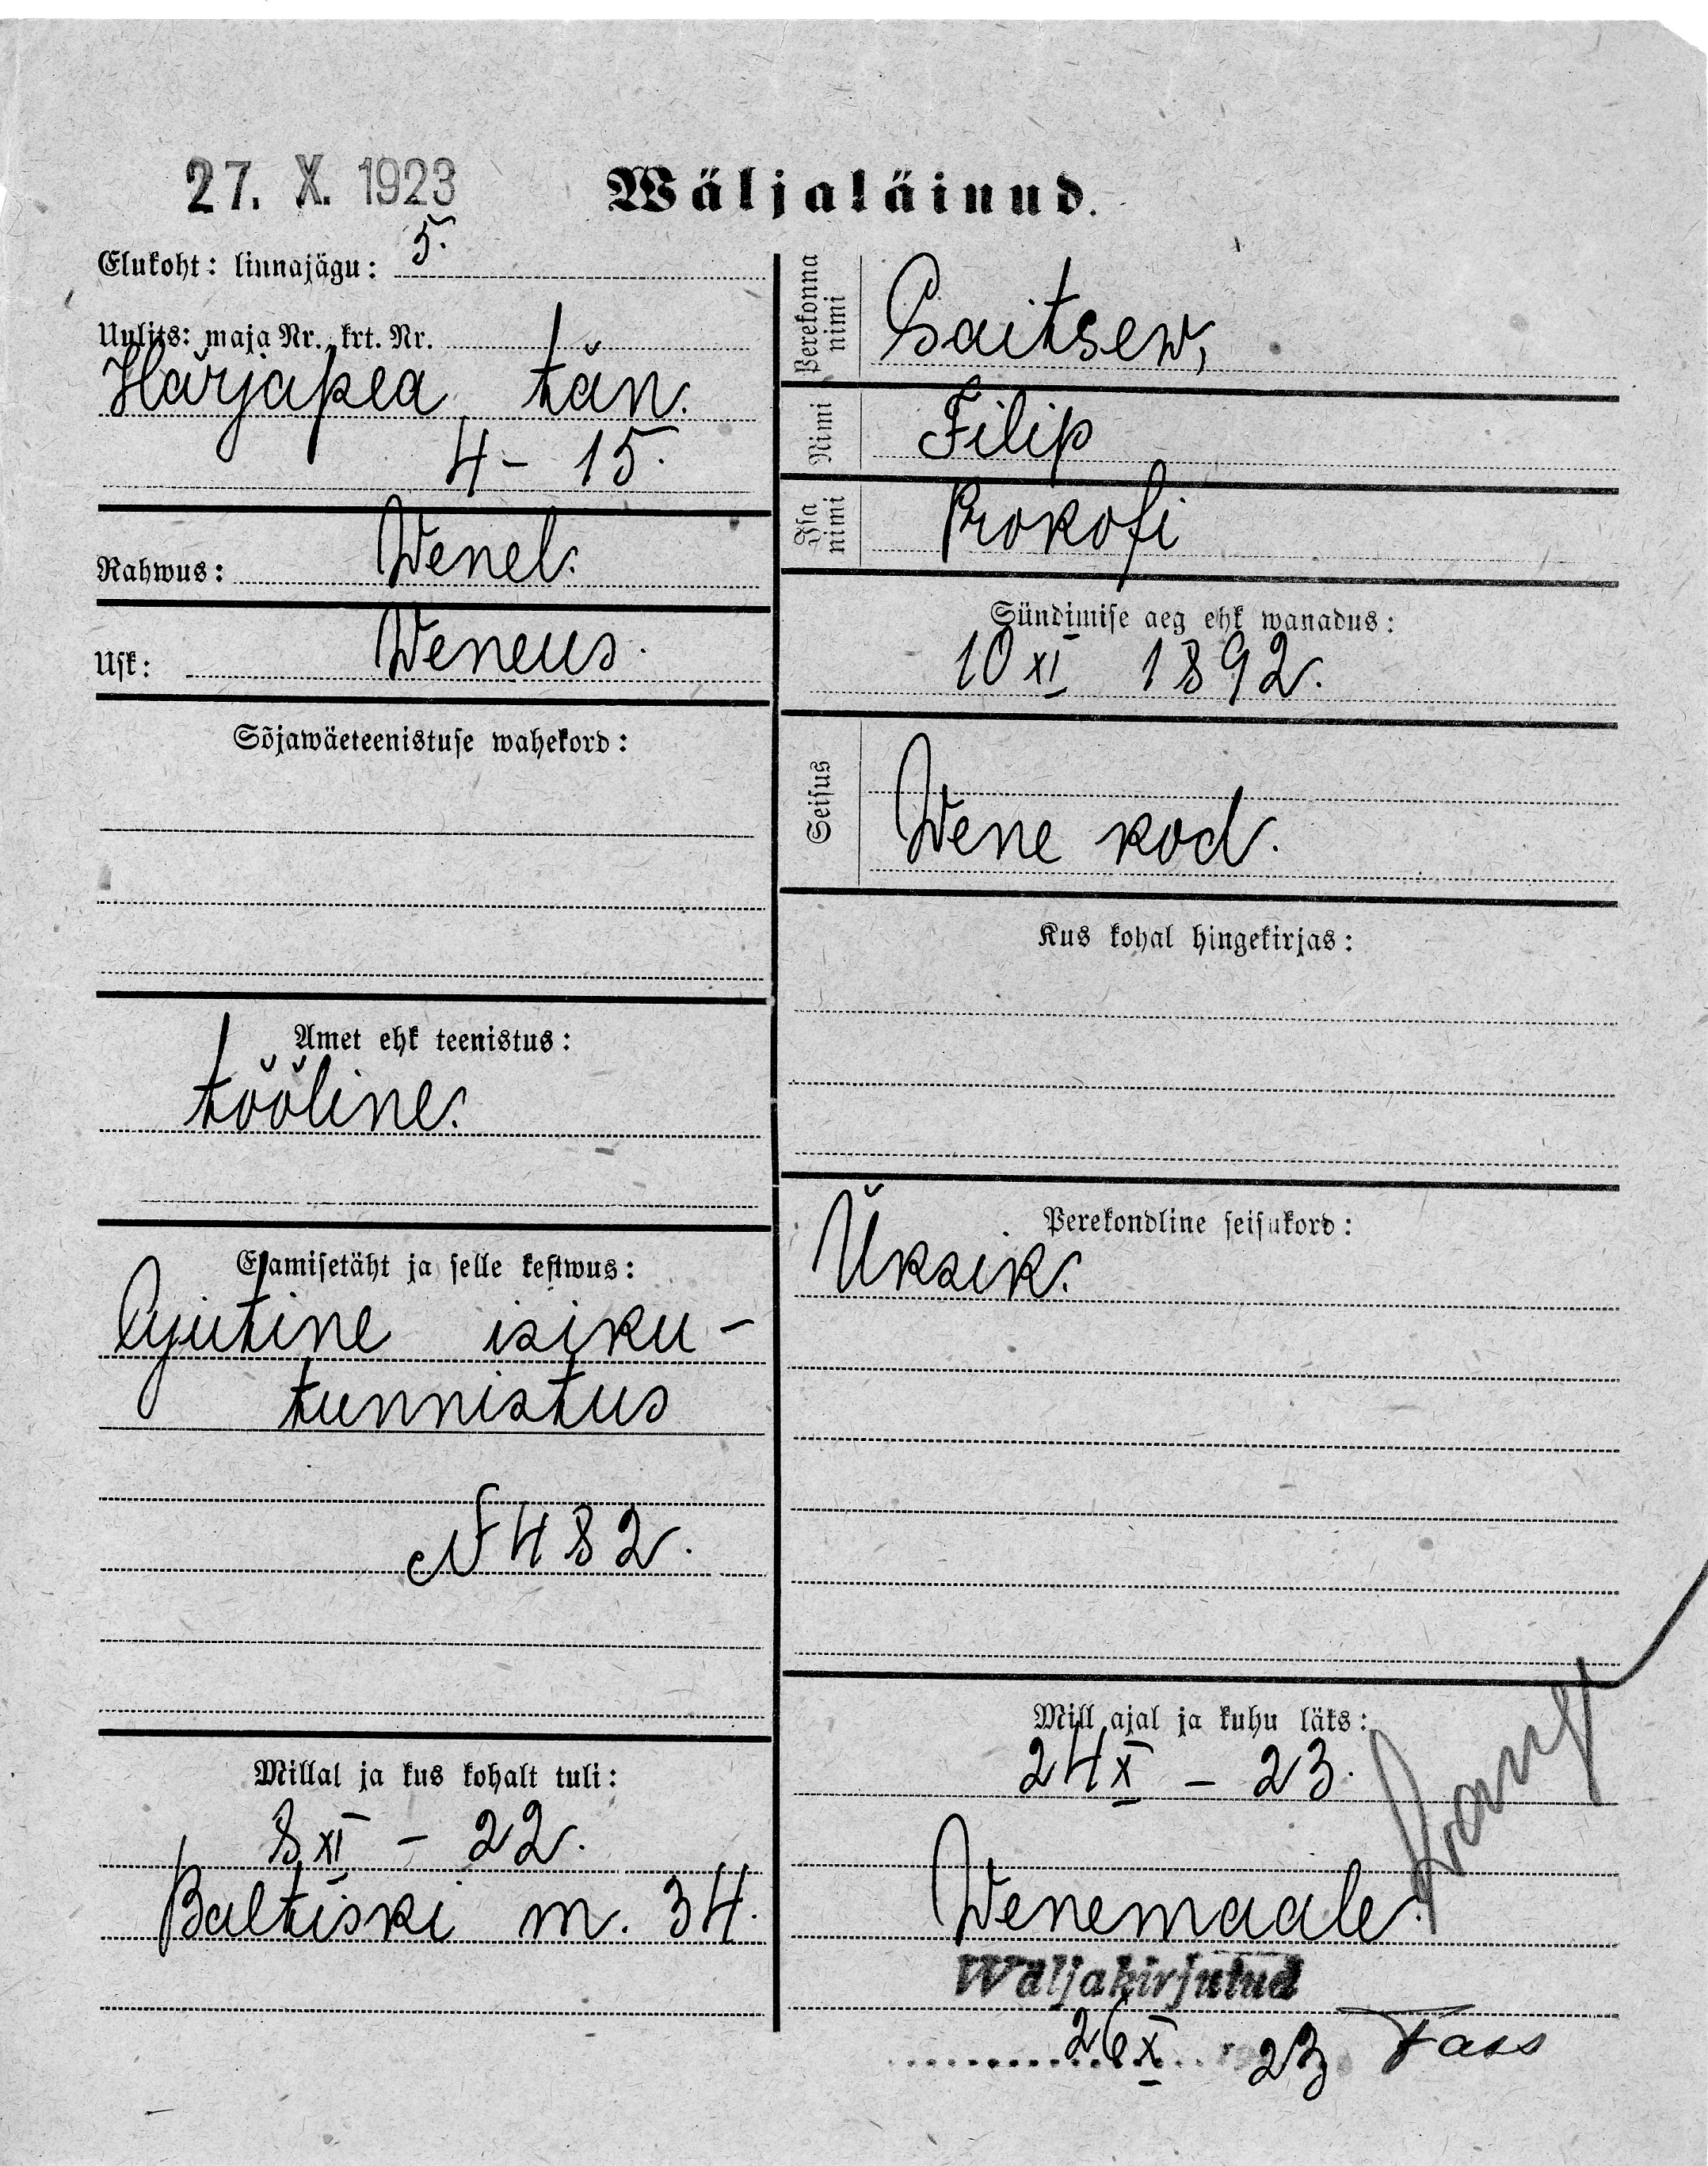 27. X. 1923
Wäljaläinud.
Elukoht: linnajägu: 5.
Uulits: maja Nr., krt. Nr.
Härjapea tän.
4 - 15.
Rahwus: Wenel.
Usk: Weneus.
Sõjawäeteenistuse wahekord:
Amet ehk teenistus:
tööline.
Elamisetäht ja selle kestwus:
Ajutine isiku-
tunnistus
N 482.
Millal ja kus kohalt tuli:
8 XI - 22.
Baltiski m. 34.
Perekonna nimi
Saitsew,
Nimi
Filip
Isa nimi
Prokofi
Sündimise aeg ehk wanadus:
10 XI 1892.
Seisus
Wene kod.
Kus kohal hingekirjas:
Perekondline seisukord:
Üksik.
Mill ajal ja kuhu läks:
24 X - 23.
Wenemaale.
Wäljakirjutud
26 X 23 Tass